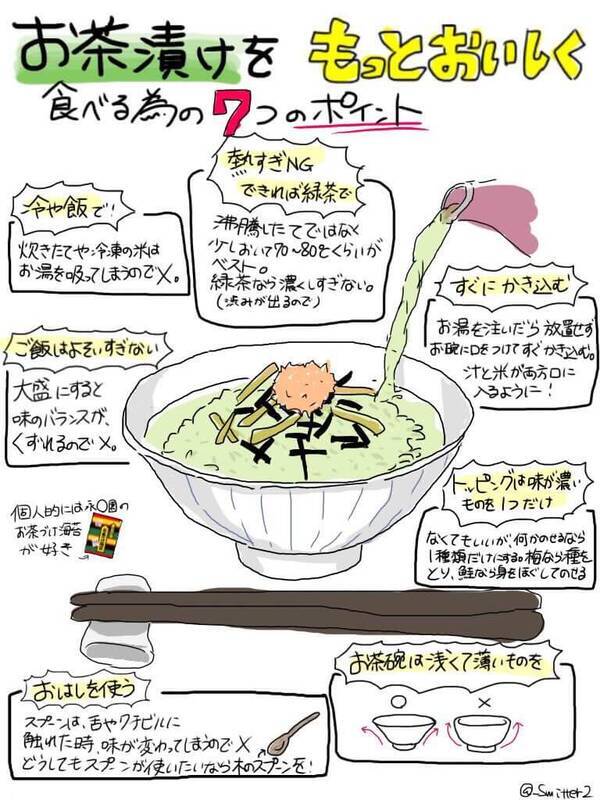 お茶漬けを もっとおいしく
食べる為の7つのポイント
冷や飯で!
炊きたてや冷凍の米は
お湯を吸ってしまうので×。
熱すぎNG
できれば緑茶で
沸騰したてではなく
少しおいて70~80℃くらいが
ベスト。
緑茶なら濃くしすぎない。
(渋みが出るので)
すぐに かき込む
お湯を注いだら放置せず
お碗に口をつけてすぐかき込む。
汁と米が両方口に
入るように!
ご飯はよそいすぎない
大盛にすると
味のバランスが、
くずれるので×。
個人的には永〇園の
お茶づけ海苔
が好き
トッピングは味が濃い
ものを1つだけ
なくてもいいが、何かのせるなら
1種類だけにする。梅なら種を
とり、鮭なら身をほぐしてのせる
おはしを使う
スプーンは、舌やクチビルに
触れた時、味が変わってしまうので×
どうしてもスプーンが使いたいなら木のスプーンを!
お茶碗は浅くて薄いものを
○ ×
@_Smitter2